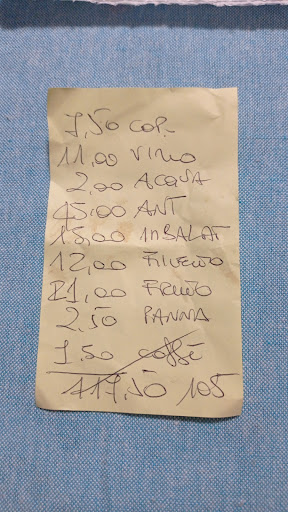 7,50 COP.
11,00 VINO
2,00 ACQUA
45,00 ANT
15,00 INSALAT
12,00 FILETTO
21,00 FRITTO
2,50 PANNA
1.50 coffè
117,50 105